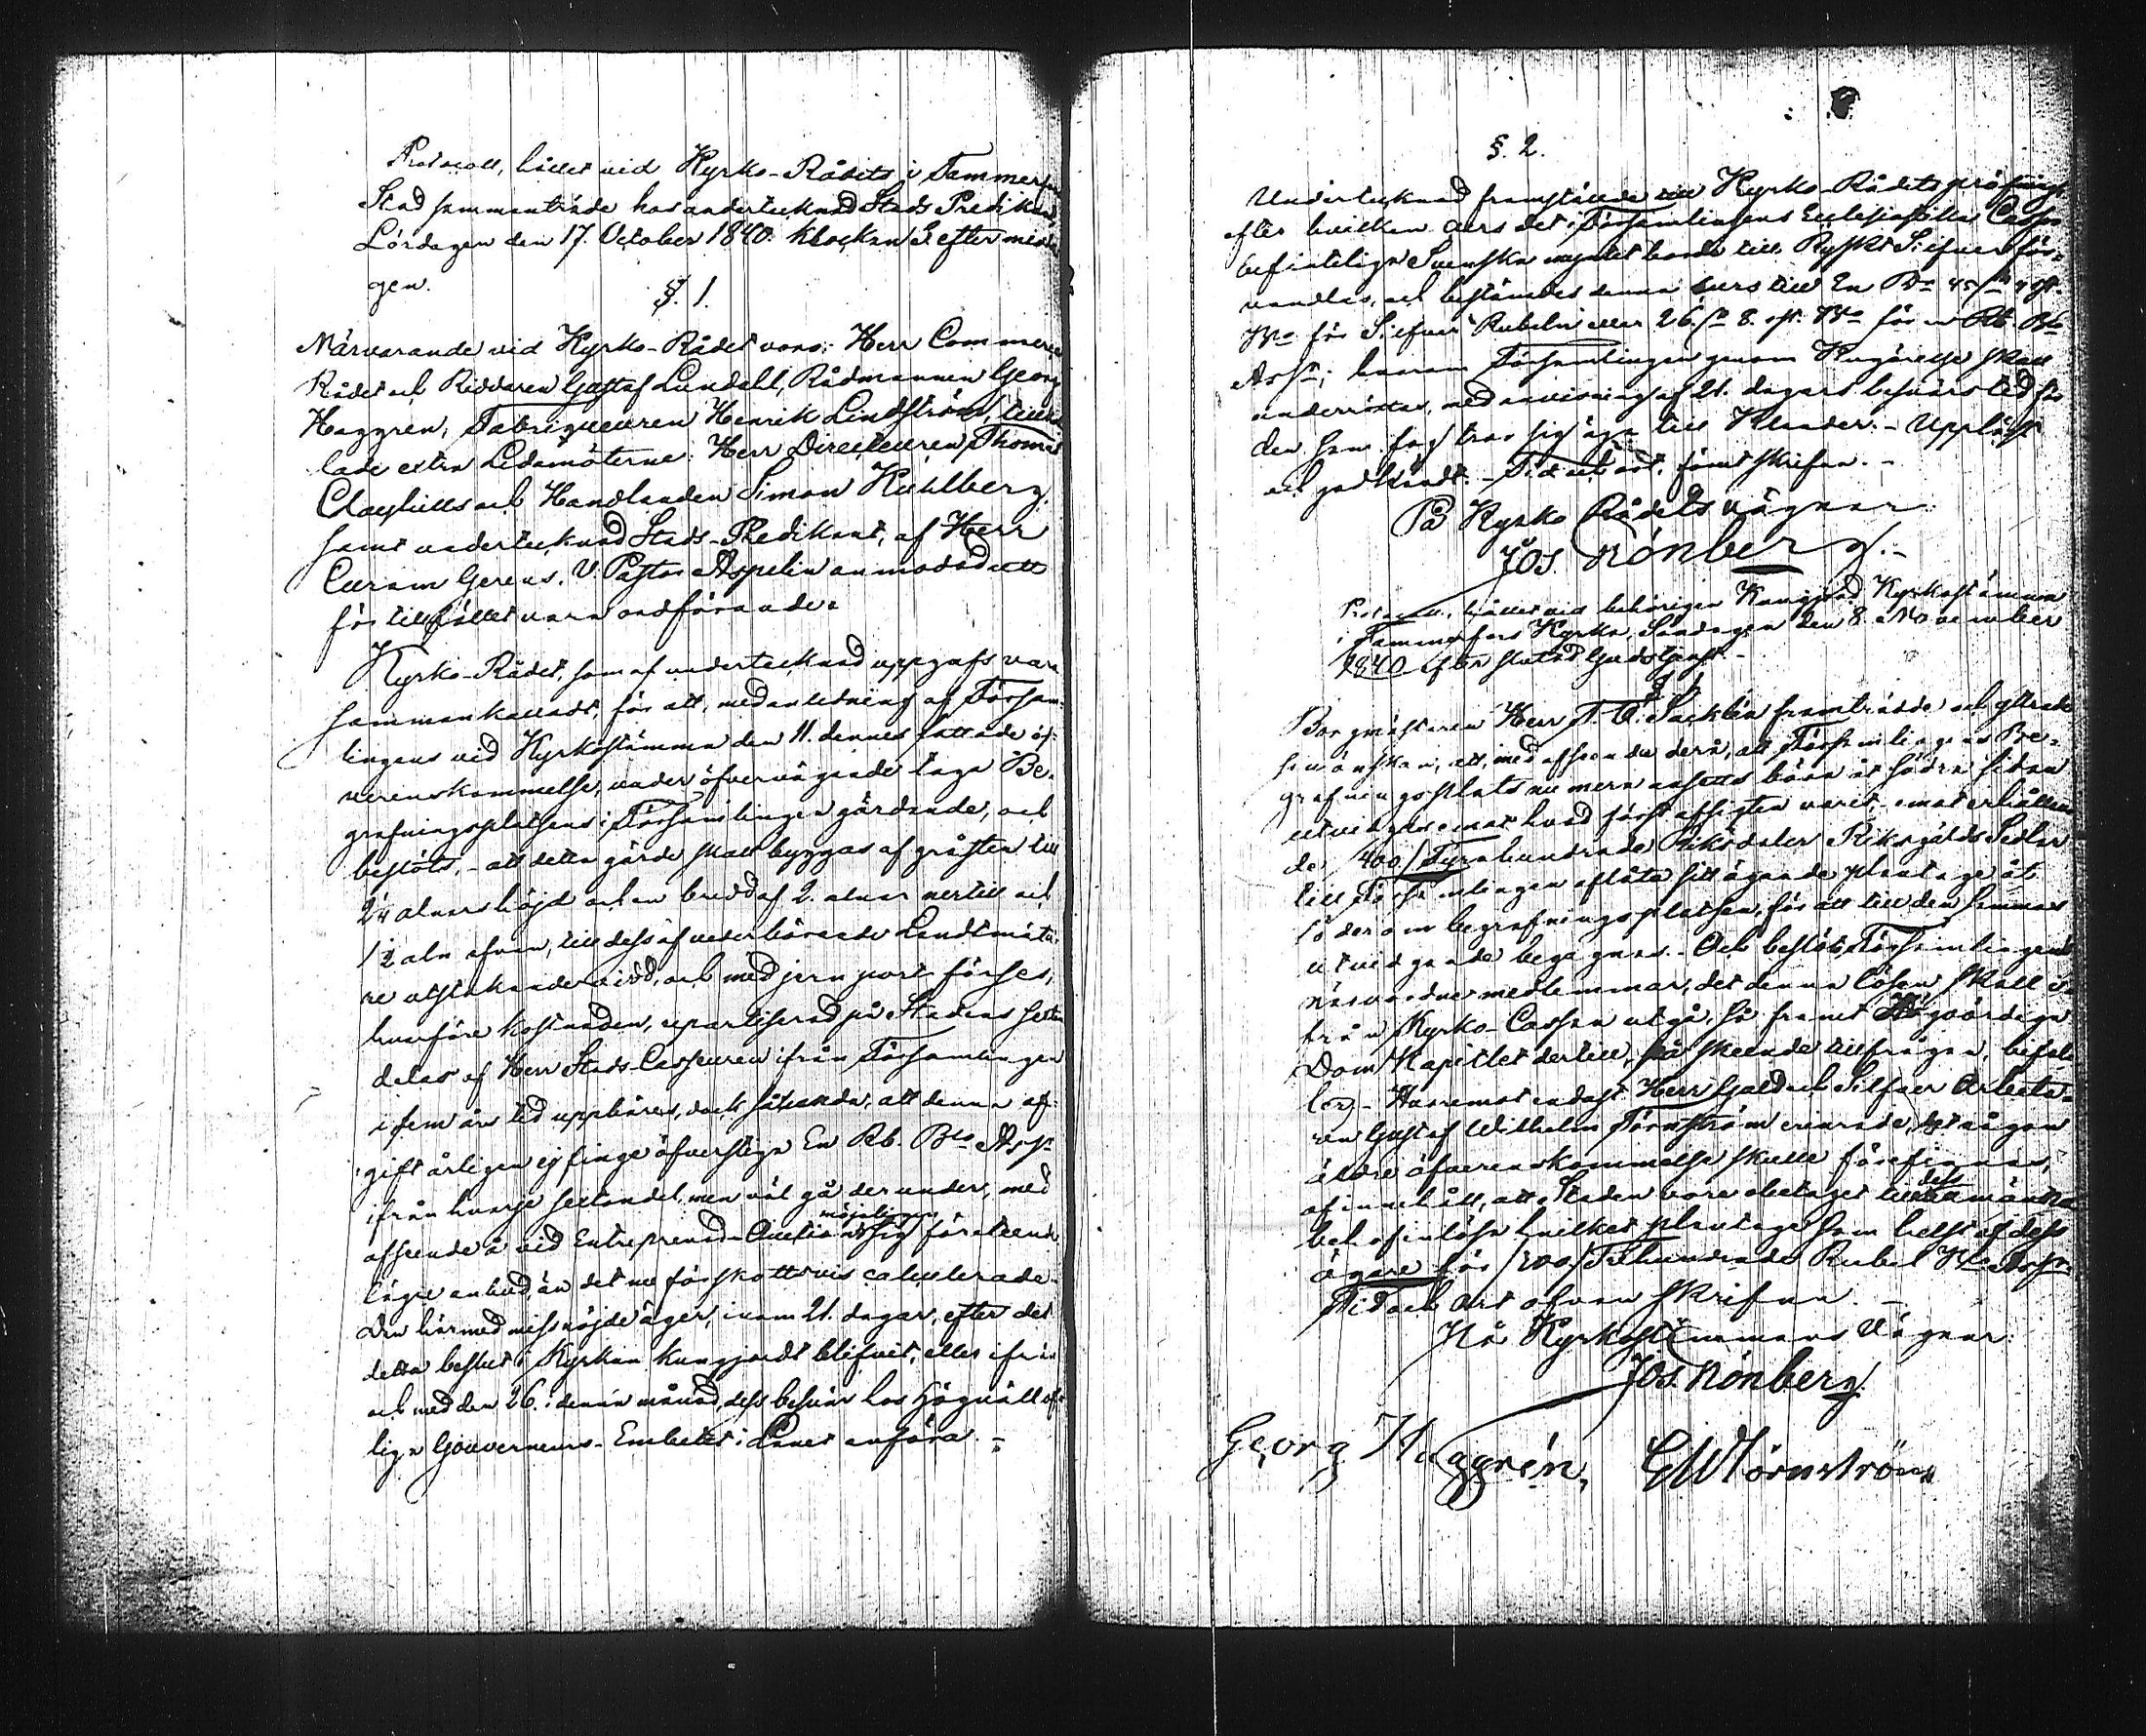 Protocoll, hållet vid Kyrko-Rådets i Tammerfors
Stad sammanträde hos undertecknad Stads Predikant
Lördagen den 17. October 1840. klockan 3 efter midda-
gen.
§. 1.
Närvarande vid Kyrko-Rådet voro: Herr Commerce
Rådet och Riddaren Gustaf Lundahl, Rådmannen Georg
Haggrén, Fabriqueuren Henrik Lindström, tillkal-
lade extra Ledamöterne: Herr Directeuren Thomas
Clayhills och Handlanden Simon Kuhlberg,
samt undertecknad Stads-Predikant, af Herr
Curam Gerens, V. Pastor Aspelin anmodad att
för tillfället vara ordförande.
Kyrko-Rådet, som af undertecknad uppgafs vara
sammankalladt, för att, med anledning af Försam-
lingens vid Kyrkostämma den 11. dennes fattade öf-
verenskommelse, under öfvervägande taga Be-
grafningsplatsens i Församlingen gärdande, och
beslöts, - att detta gärde skall byggas af gråsten till
2¼ alnars höjd och en bredd af 2. alnar nertill och
1½ aln ofvan, till dess af vederbörande Landtmäta-
re utstakande vidd, och med jern port förses,
hvarföre kostnaden, repartiserad på Stadens
delar af Herr Stads-Casseuren ifrån Församlingen
i fem års tid uppbäres, dock sålunda, att denna af-
gift årligen ej finge öfverstiga En Rb. Bco Assr
ifrån hvarje, men väl gå derunder, med
afseende å vid Entreprenad-Auction sig möjeligen företeende
lägre anbud, än det nu förskottsvis calculerade.
Den härmed missnöjde äger, inom 21. dagar, efter det
detta beslut i Kyrkan kungjordt blifvit, eller ifrån
och med den 26. i denna månad, dess besvär hos Högvällof-
liga Gouverneurs-Embetet i Länet anföra. -
§. 2.
Undertecknad framställde till Kyrko-Rådets pröfning
efter hvilken cours det i Församlingens Ecklesiastika Cassa
befinteliga Svenska myntet borde till Ryskt Silfver för-
vandlas, och bestämdes denna curs till En
för Silfver Rubeln eller 26. 8.
Assr; hvarom Församlingen genom Kungörelse skall
underrättas, med anvisning af 21. dagars besvärs tid för
den som sag tror sig äga till Klander. - Uppläst
och godkändt. - Tid och ort, förut skrifne. -
På Kyrko Rådets vägnar
Jos. Rönberg. -
Protocoll, hållet vid behörigen Kungjord Kyrkostämma
i Tammerfors Kyrka, Söndagen den 8. November
1840 efter slutad Gudstjenst. -
§ 1.
Borgmästaren Herr F. O. Sacklén framträdde och yttrade
sin önskan, att, med afseende derå, att Församlingens Be-
grafningsplats nu mera ansetts böra åt södra sidan
utvidgas emot hvad först afsigten varit, emot erhållen-
de /400/ Fyrahundrade Riksdaler Riksgälds Sedlar
till Församlingen aflåta sitt ägande plantage åt
söder om begrafningsplatsen, för att till den sammas
utvidgande begagnas. - Och beslöto Församlingens
närvarande medlemmar, det denna lösen skall i-
från Kyrko-Cassan utgå, så framt Högvördiga
Dom Kapitlet dertill, på skeende tillfrågan, bifal-
ler. - Häremot endast Herr Guld och Silfver Arbeta-
ren Gustaf Wilhelm Törnström erinrade, det någon
äldre öfverenskommelse skulle förefinnas,
af innehåll, att Staden vore obetaget till
behof inlösa hvilket plantage som helst af dess
ägare för /200/ Tvåhundrade Rubel Bco Assr.
Tid och ort ofvan skrifne. -
På Kyrkostämmans Vägnar:
Jos. Rönberg.
Georg Haggrén, GWTörnström